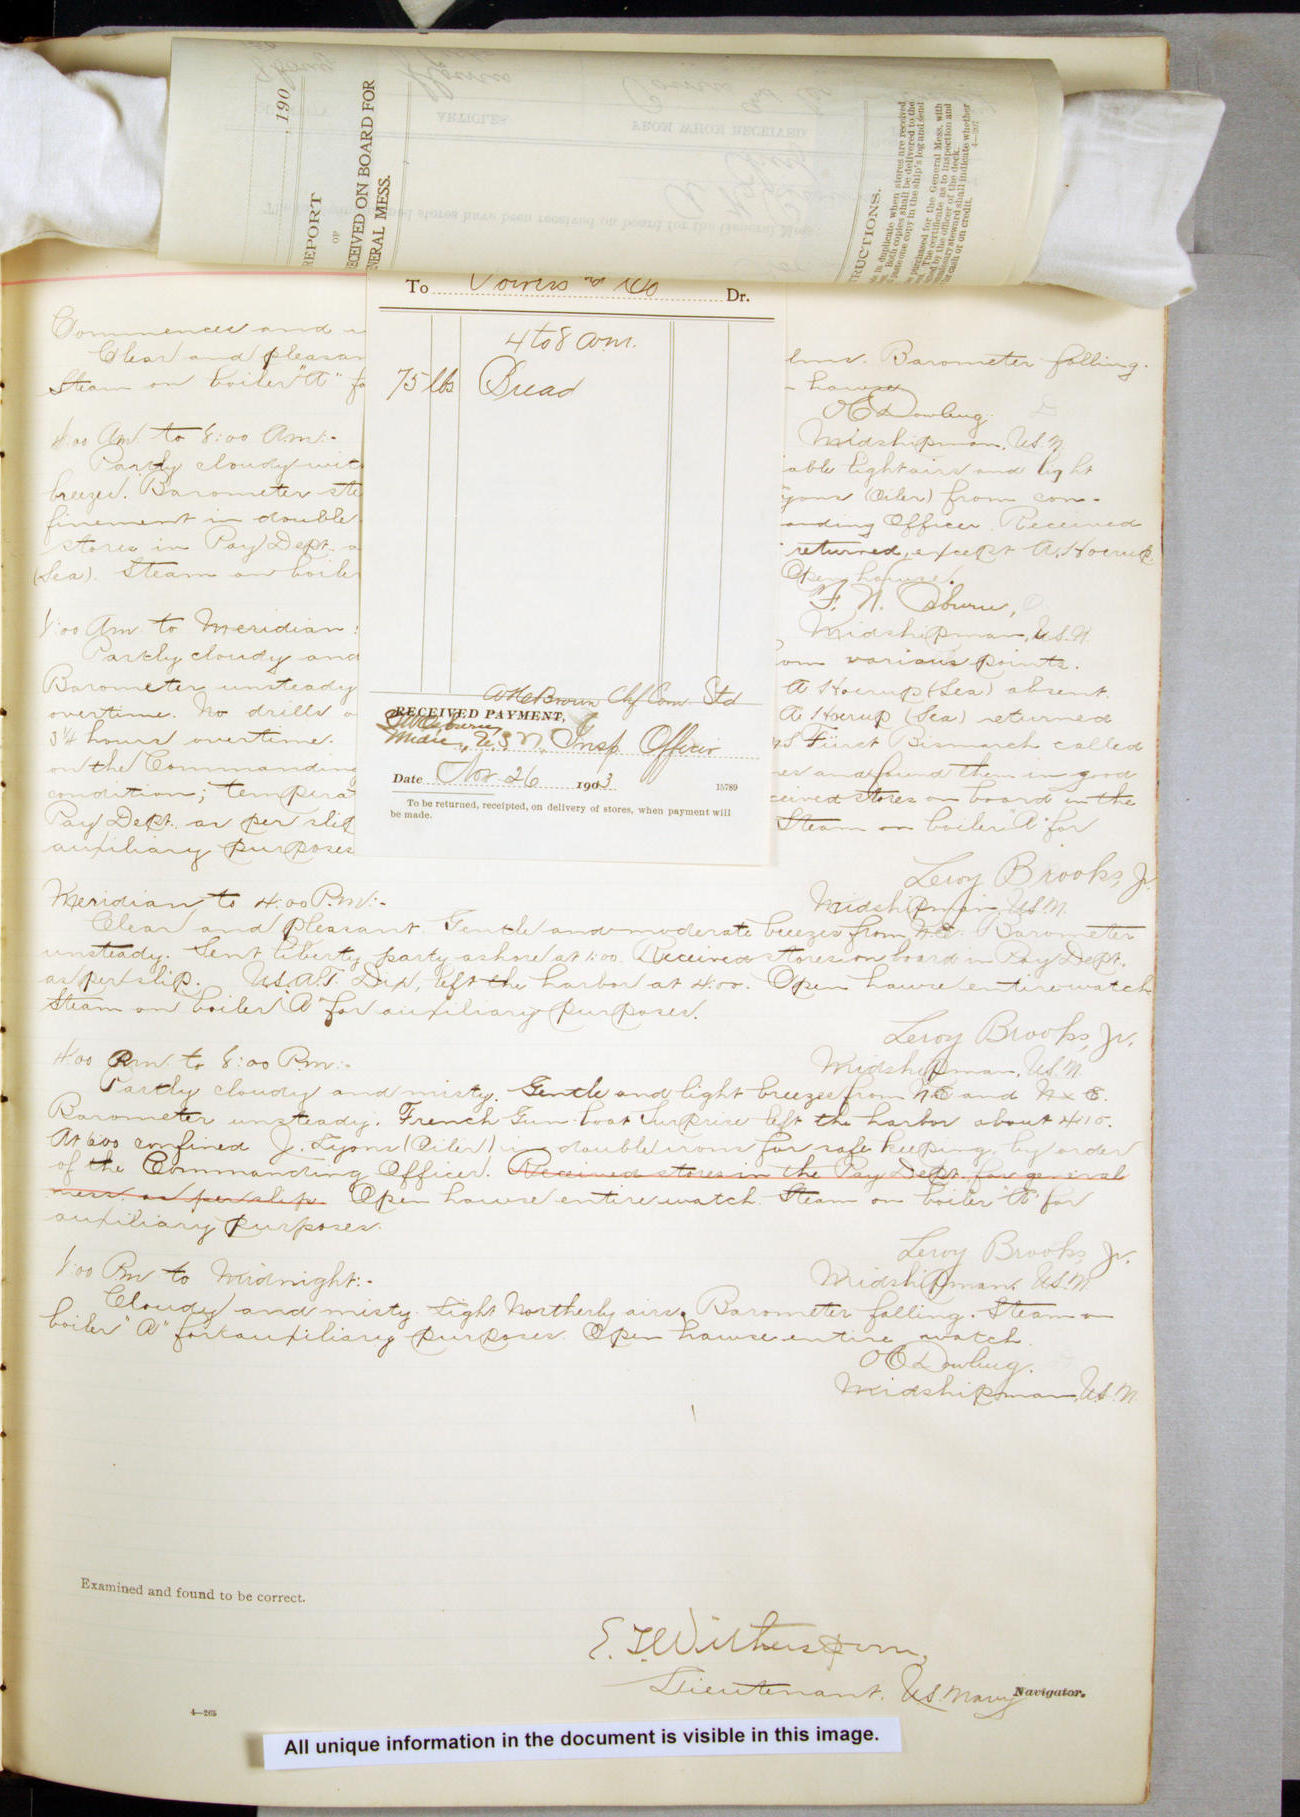 190
REPORT
OF
ECEIVED ON BOARD FOR
NERAL MESS.
ARTICLES
FROM WHOM RECEIVED
RUCTIONS.
in duplicate when stores are received
Both copies shall be delivered to the
same copy in the ship's log and send
purchased for the General Mess, with
The certificate as to inspection and
by the officer of the deck.
commissary steward shall indicate whether
for cash or on credit.
4—207
To Powers and Co Dr.
4 to 8 a.m.
75 lbs Bread
Chf Com. Std
RECEIVED PAYMENT,
Midn., U.S.N., Insp. Officer
Date Nov 26 1903
15789
To be returned, receipted, on delivery of stores, when payment will
be made.
Commences and
Clear and pleasan
lms. Barometer falling.
Steam on boiler "A" fo
hawse
O C Dowling
Midshipman, U.S.N.
4:00 Am. to 8:00 Am:-
Partly cloudy wit
able light airs and light
breezes. Barometer ste
yons (Oiler) from con-
finement in double
anding Officer. Received
stores in Pay Dept. a
returned, except A. Hoerup
(Sea). Steam on boiler
Open hawse.
F. N. Osburn,
Midshipman, U.S.N.
8:00 Am. to Meridian:
Partly cloudy and
om various points.
Barometer unsteady
A Hoerup (Sea) absent
overtime. No drills o
A Hoerup (Sea) returned
3 1/4 hours overtime.
MS Fürst Bismarck called
on the Commanding
res and found them in good
condition; temperat
ceived stores on board in the
Pay Dept. as per slip
Steam on boiler "A" for
auxiliary purposes
Leroy Brooks, Jr.
Midshipman, U.S.N.
Meridian to 4:00 P.M:-
Clear and pleasant. Gentle and moderate breezes from N.E. Barometer
unsteady. Sent liberty party ashore at 1:00. Received stores on board in Pay Dept.
as per slip. U.S.A.T. Dix, left the harbor at 4:00. Open hawse entire watch
Steam on boiler "A" for auxiliary purposes.
Leroy Brooks, Jr.
Midshipman, U.S.N.
4:00 Pm to 8:00 Pm:-
Partly cloudy and misty. Gentle and light breezes from N.E and N x E.
Barometer unsteady. French Gun-boat Surprise left the harbor about 4:10.
At 6:00 confined J. Lyons (Oiler) in double irons for safe keeping, by order
of the Commanding Officer. Received stores in the Pay Dept. for general
mess as per slip. Open hawse entire watch. Steam on boiler "A" for
auxiliary purposes.
Leroy Brooks, Jr.
Midshipman, U.S.N.
8:00 Pm to Midnight:-
Cloudy and misty. Light Northerly airs. Barometer falling. Steam on
boiler "A" for auxiliary purposes. Open hawse entire watch.
O C Dowling.
Midshipman, U.S.N.
Examined and found to be correct.
E. T. Witherspoon,
Lieutenant, U.S. Navy Navigator.
4—265
All unique information in the document is visible in this image.